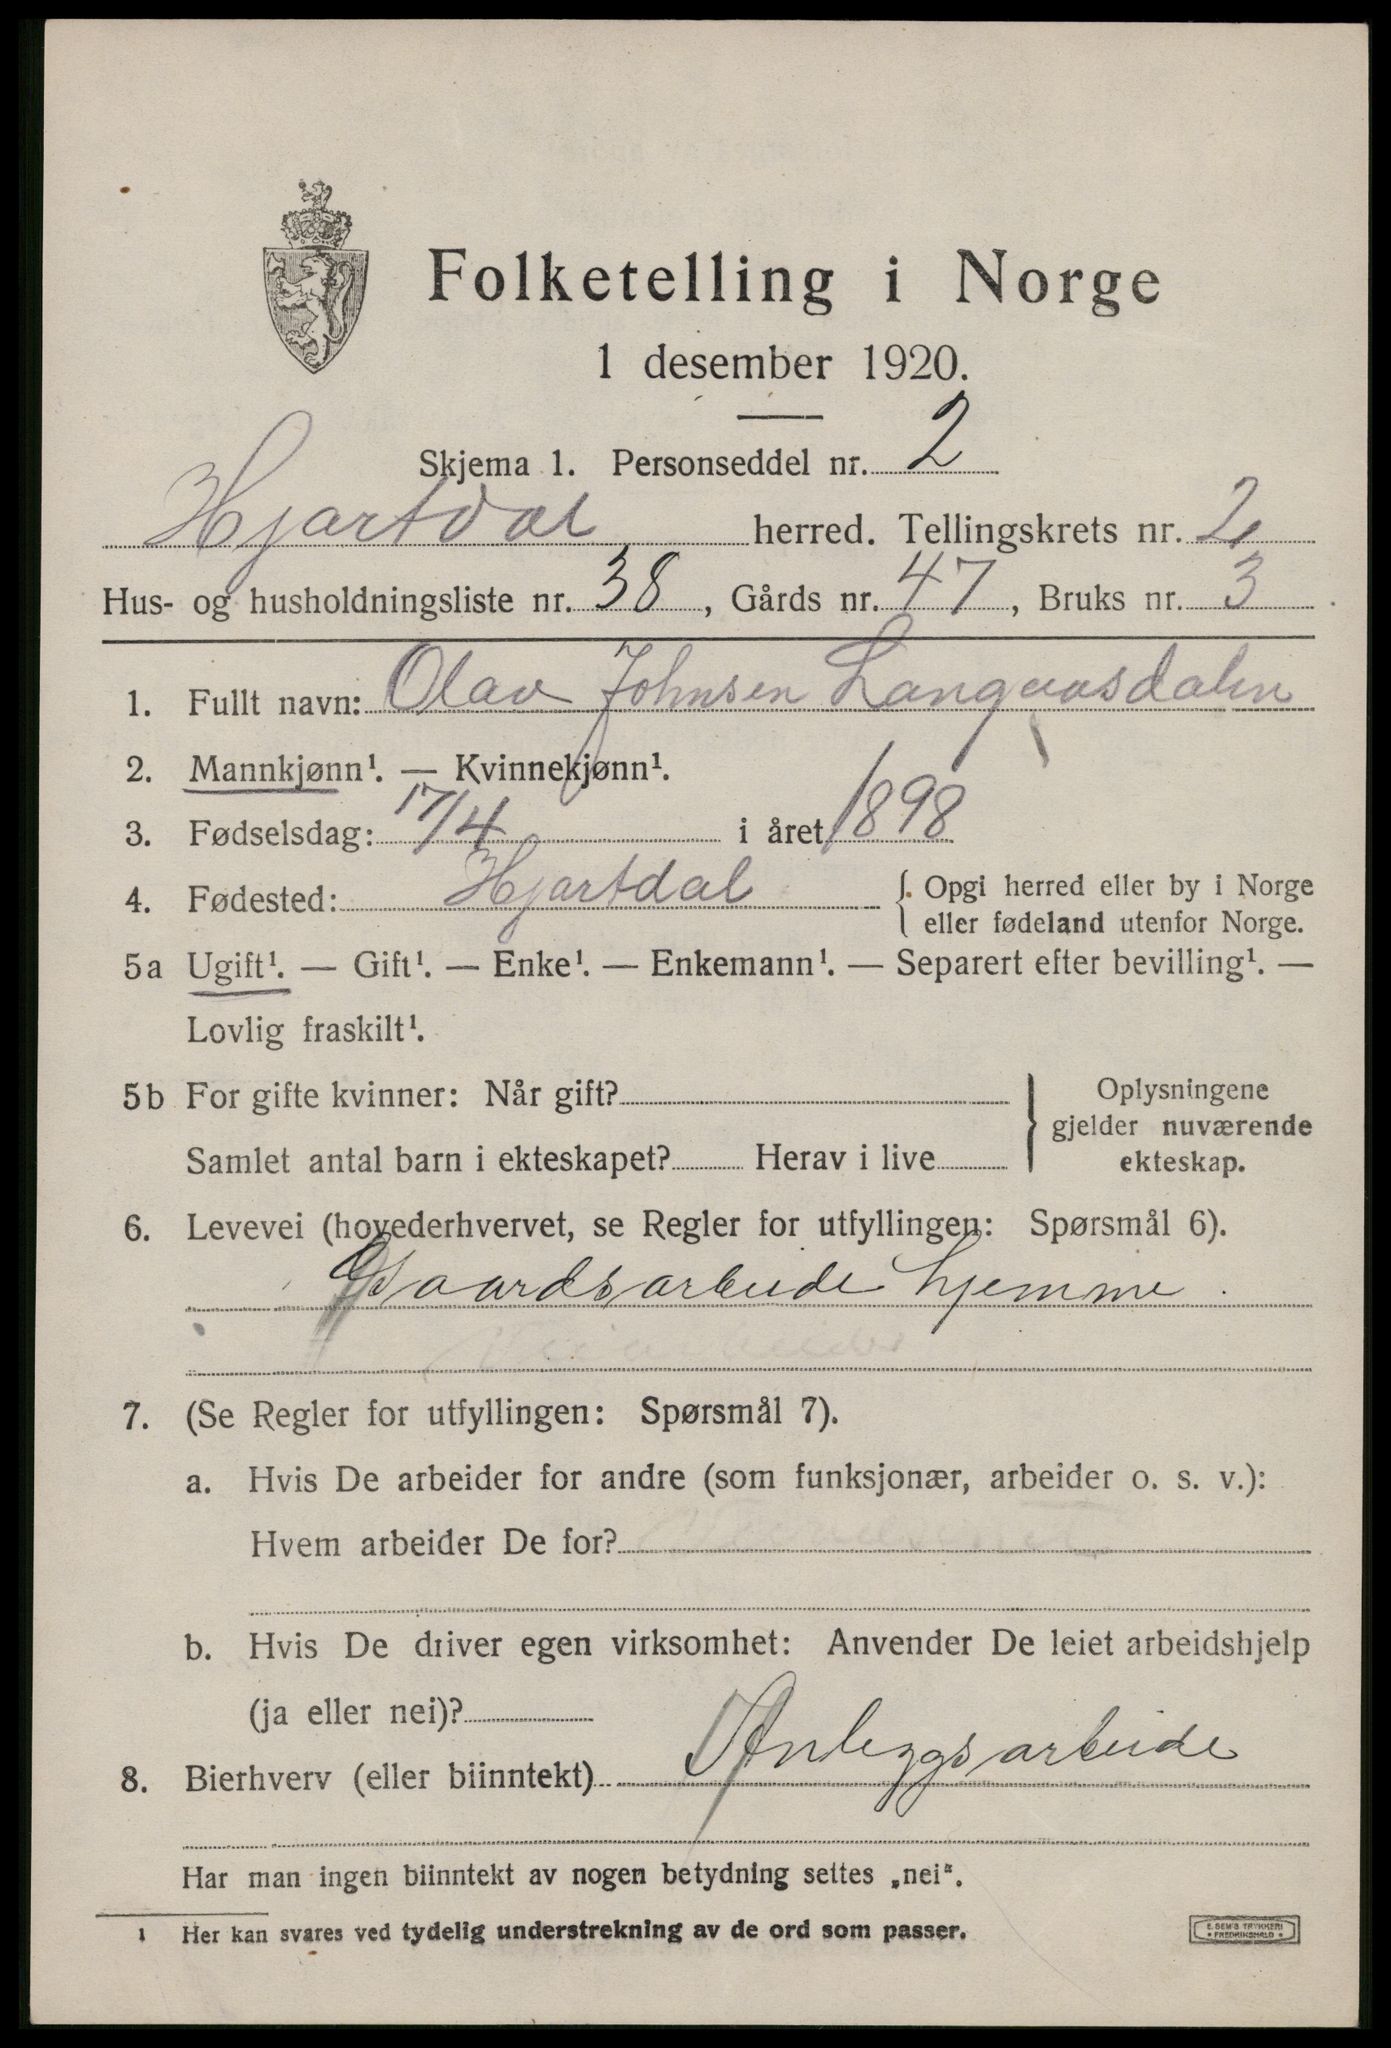 Folketelling i Norge
1 desember 1920.
Skjema 1. Personseddel nr. 2
Hjartdal herred. Tellingskrets nr. 2
Hus- og husholdningsliste nr. 38, Gårds nr. 47, Bruks nr. 3
1. Fullt navn: Olav Johnsen
2. Mannkjønn¹. — Kvinnekjønn¹.
3. Fødselsdag: 17/4 i året 1898
4. Fødested: Hjartdal { Opgi herred eller by i Norge
eller fødeland utenfor Norge.
5a Ugift¹. — Gift¹. — Enke¹. — Enkemann¹. — Separert efter bevilling¹. —
Lovlig fraskilt¹.
5b For gifte kvinner: Når gift?
Samlet antal barn i ekteskapet? Herav i live
} Oplysningene
gjelder nuværende
ekteskap.
6. Levevei (hovederhvervet, se Regler for utfyllingen: Spørsmål 6).
Gaardsarbeide hjemme.
7. (Se Regler for utfyllingen: Spørsmål 7).
a. Hvis De arbeider for andre (som funksjonær, arbeider o. s. v.):
Hvem arbeider De for?
b. Hvis De driver egen virksomhet: Anvender De leiet arbeidshjelp
(ja eller nei)?
8. Bierhverv (eller biinntekt) Anleggsarbeide
Har man ingen biinntekt av nogen betydning settes „nei“.
1 Her kan svares ved tydelig understrekning av de ord som passer.
E. SEM'S TRYKKERI
• FREDRIKSHALD •